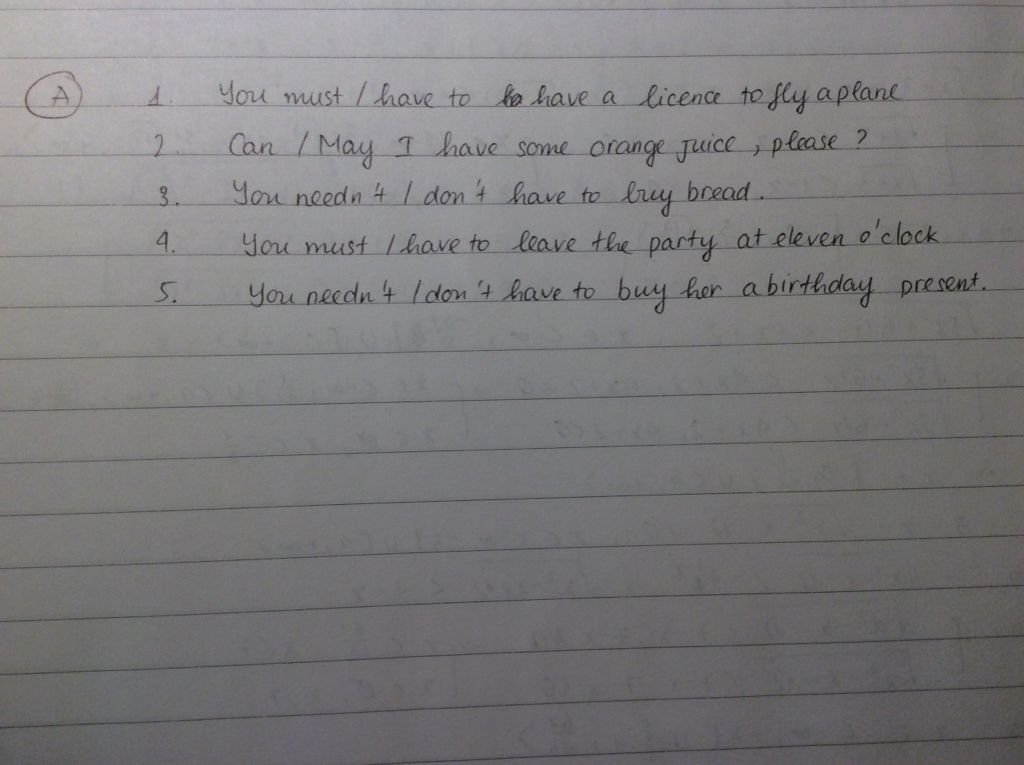 A 1. You must / have to have a licence to fly a plane
2. Can / May I have some orange juice, please?
3. You needn't / don't have to buy bread.
4. You must / have to leave the party at eleven o'clock
5. You needn't / don't have to buy her a birthday present.